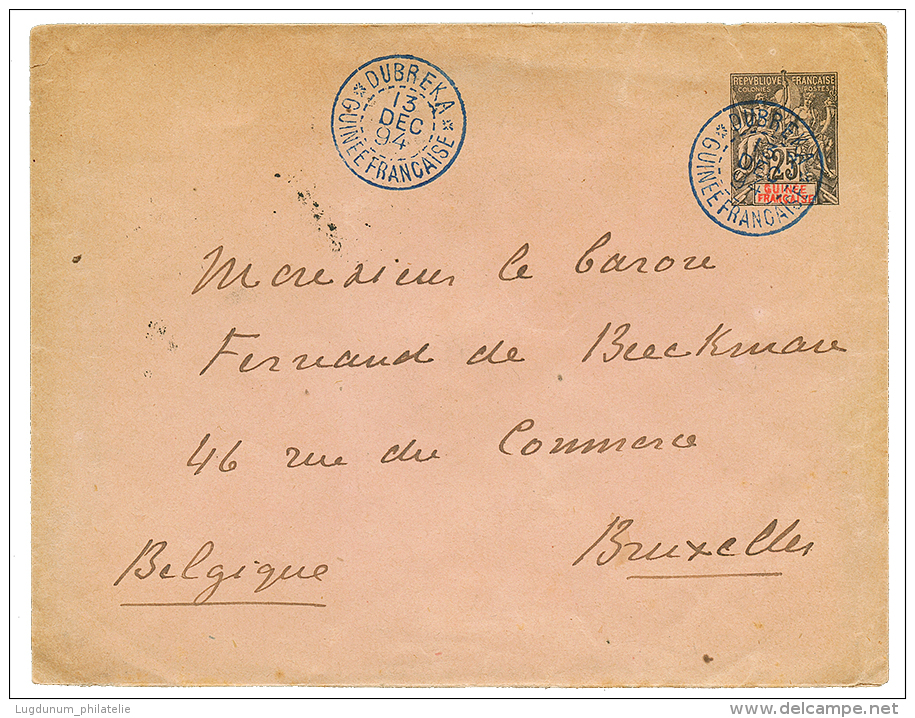 DUBREKA
13
DEC
94
GUINÉE FRANÇAISE
REPVBLIQVE FRANÇAISE
COLONIES POSTES
DUBREKA
25
GUINÉE
FRANÇAISE
GUINÉE FRANÇAISE
Monsieur le baron
Fernand de Beeckman
46 rue du Commerce
Bruxelles
Belgique
Lugdunum_philatelie
delcampe.net